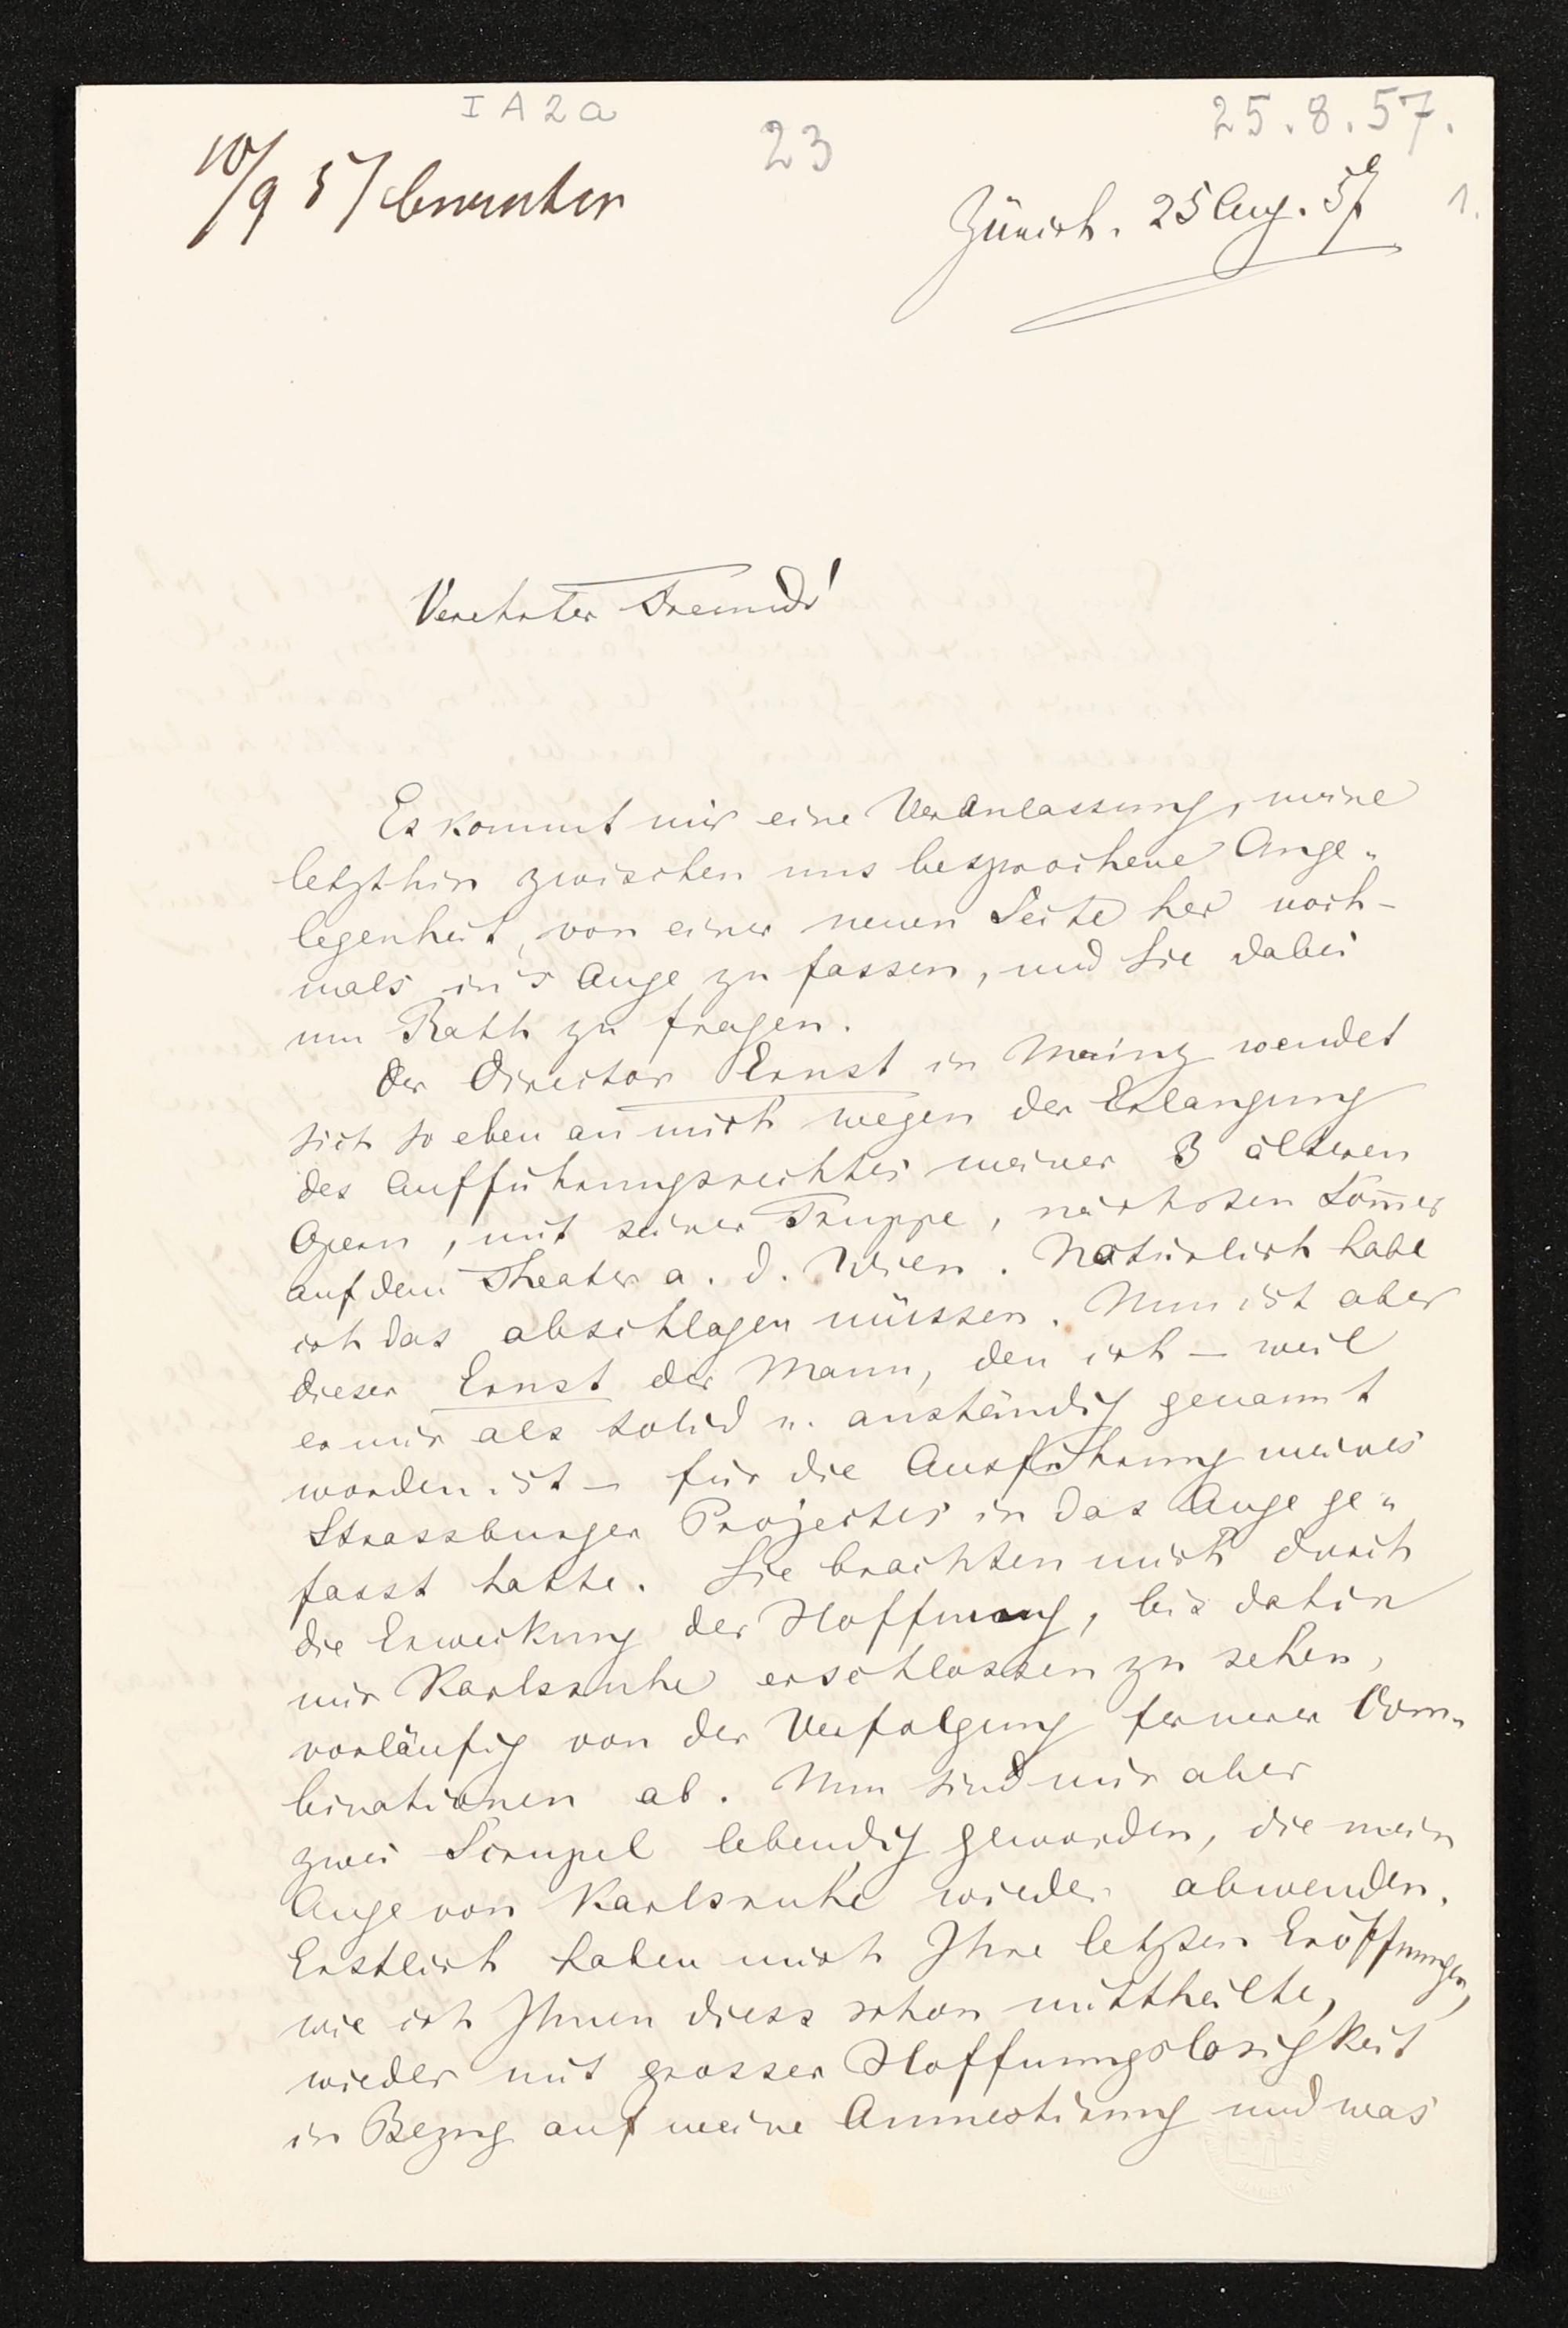 I A 2 a
23
25.8.57.
10/9 57 beantw
Zürich. 25 Aug. 57
1.
Verehrter Freund!
Es kommt mir eine Veranlassung, meine
letzthin zwischen uns besprochene Ange„
legenheit, von einer neuen Seite her noch-
mals in's Auge zu fassen, und Sie dabei
um Rath zu fragen.
Der Director Ernst in Mainz wendet
sich so eben an mich wegen der Erlangung
des Aufführungsrechtes meiner 3 älteren
Opern, mit seiner Truppe, nächsten Som̄er
auf dem Theater a. d. Wien. Natürlich habe
ich das abschlagen müssen. Nun ist aber
dieser Ernst der Mann, den ich – weil
er mir als solid u. anständig genannt
worden ist – für die Ausführung meines
Strassburger Projectes in das Auge ge„
fasst hatte. Sie brachten mich durch
die Erweckung der Hoffnung, bis dahin
mir Karlsruhe erschlossen zu sehen,
vorläufig von der Verfolgung fernerer Com„
binationen ab. Nun sind mir aber
zwei Scrupel lebendig geworden, die mein
Auge von Karlsruhe wieder abwenden.
Erstlich haben mich Ihre letzten Eröffnungen,
wie ich Ihnen diess schon mittheilte,
wieder mit grosser Hoffnungslosigkeit
in Bezug auf meine Amnestirung und was